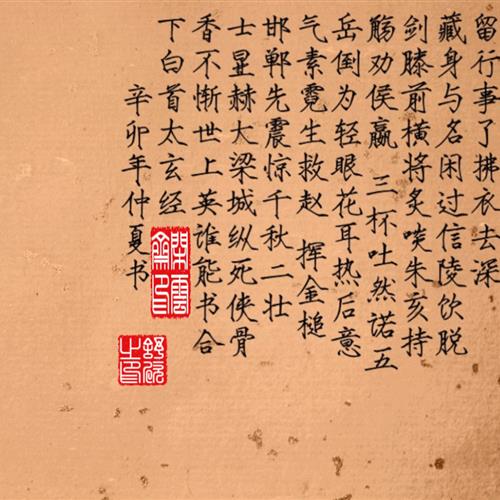 留行事了拂衣去深
藏身与名闲过信陵饮脱
剑膝前横将炙啖朱亥持
觞劝侯嬴 三杯吐然诺五
岳倒为轻眼花耳热后意
气素霓生救赵 挥金槌
邯郸先震惊千秋二壮
士显赫大梁城纵死侠骨
香不惭世上英谁能书合
下白首太玄经
辛卯年仲夏书